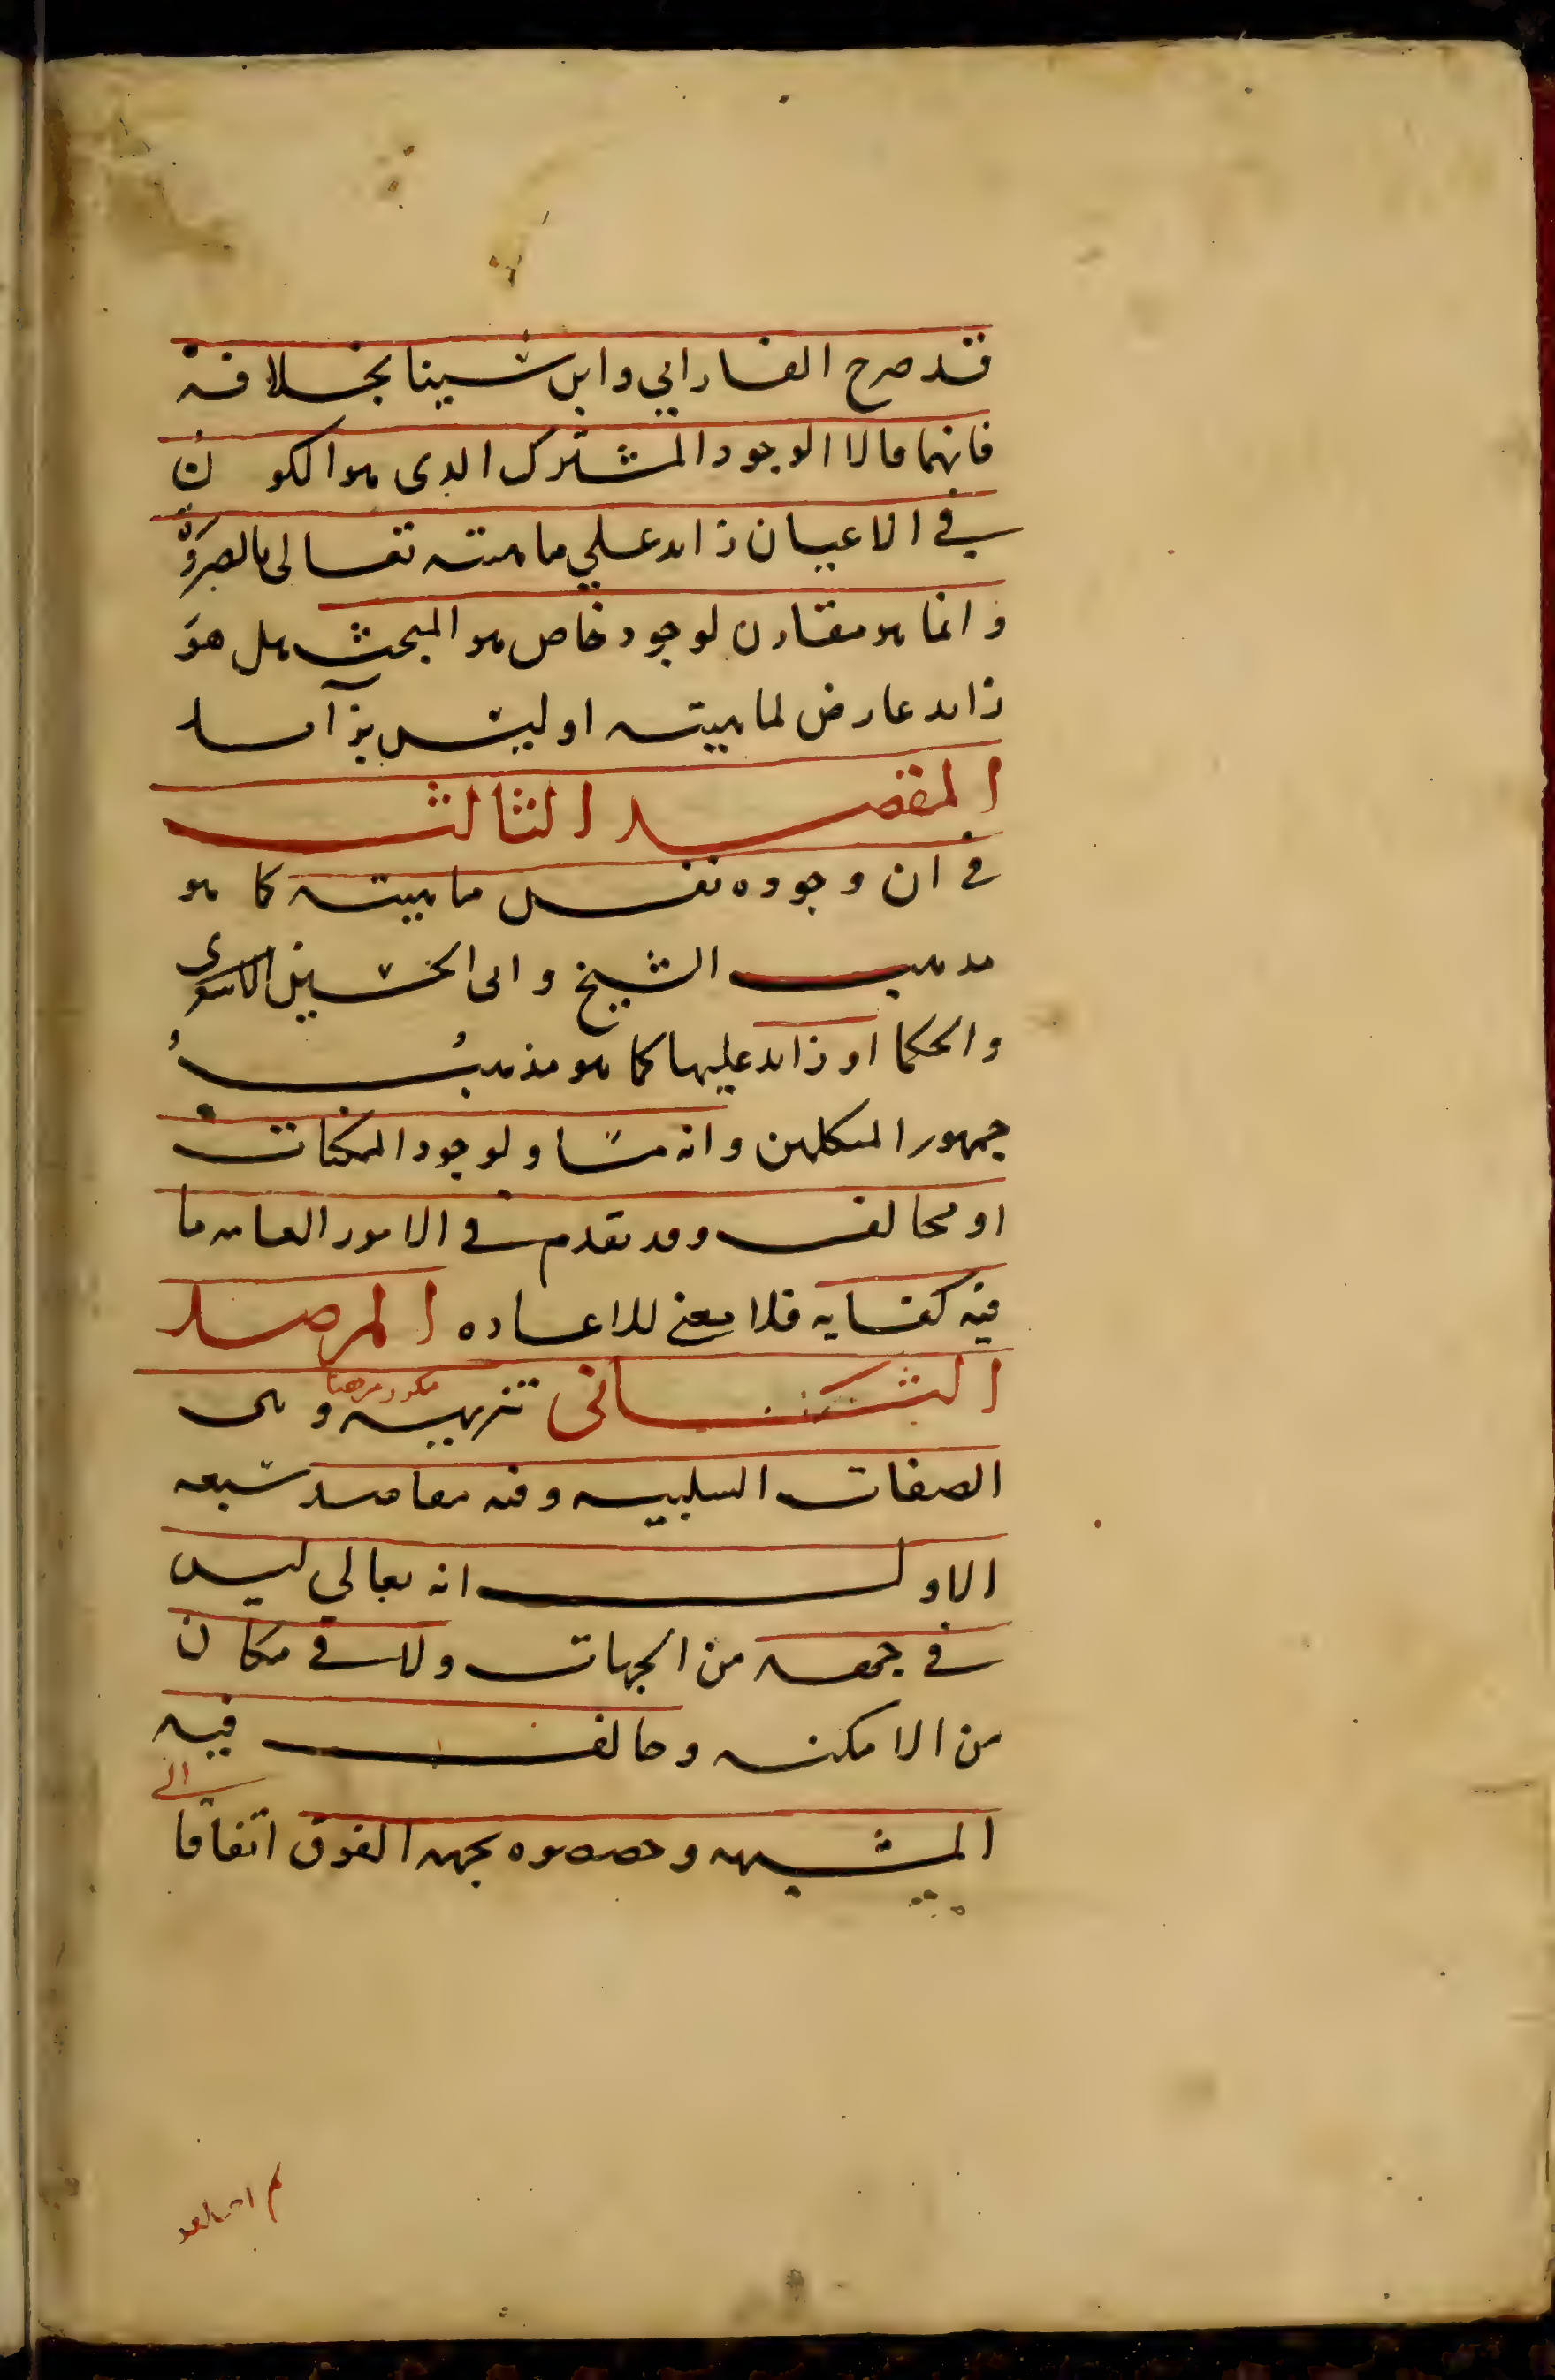 قد صرح الفارابي وابن سينا بخلافه
فانهما قالا الوجود المشترك الذي هو الكون
في الاعيان زايد علي ماهيته تعالى بالضرورة
وانما هو مقارن لوجود خاص هو المبحث هل هو
زايد عارض لماهيته او ليس بزايد
المقصد الثالث
في ان وجوده نفس ماهيته كما هو
مذهب الشيخ وابى الحسين الاشعرى
والحكما او زايد عليها كما هو مذهب
جمهور المتكلمين وانه مساو لوجود الممكنات
او مخالف وقد تقدم في الامور العامه ما
فيه كفايه فلا معنى للاعاده المرصد
الثانى تنزيهه وهى
الصفات السلبيه وفيه مقاصد سبعه
الاول انه تعالي ليس
في جهه من الجهات ولا في مكان
من الامكنه وخالف فيه
المشبهه وخصصوه بجهه الفوق اتفاقا